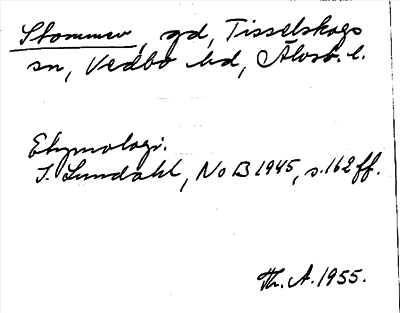 Stommen, gd, Tisselskogs
sn, Vedbo hd, Älvsb. l.
Etymologi.
I. Lundahl, NoB 1945, s. 162 ff.
Th. A. 1955.